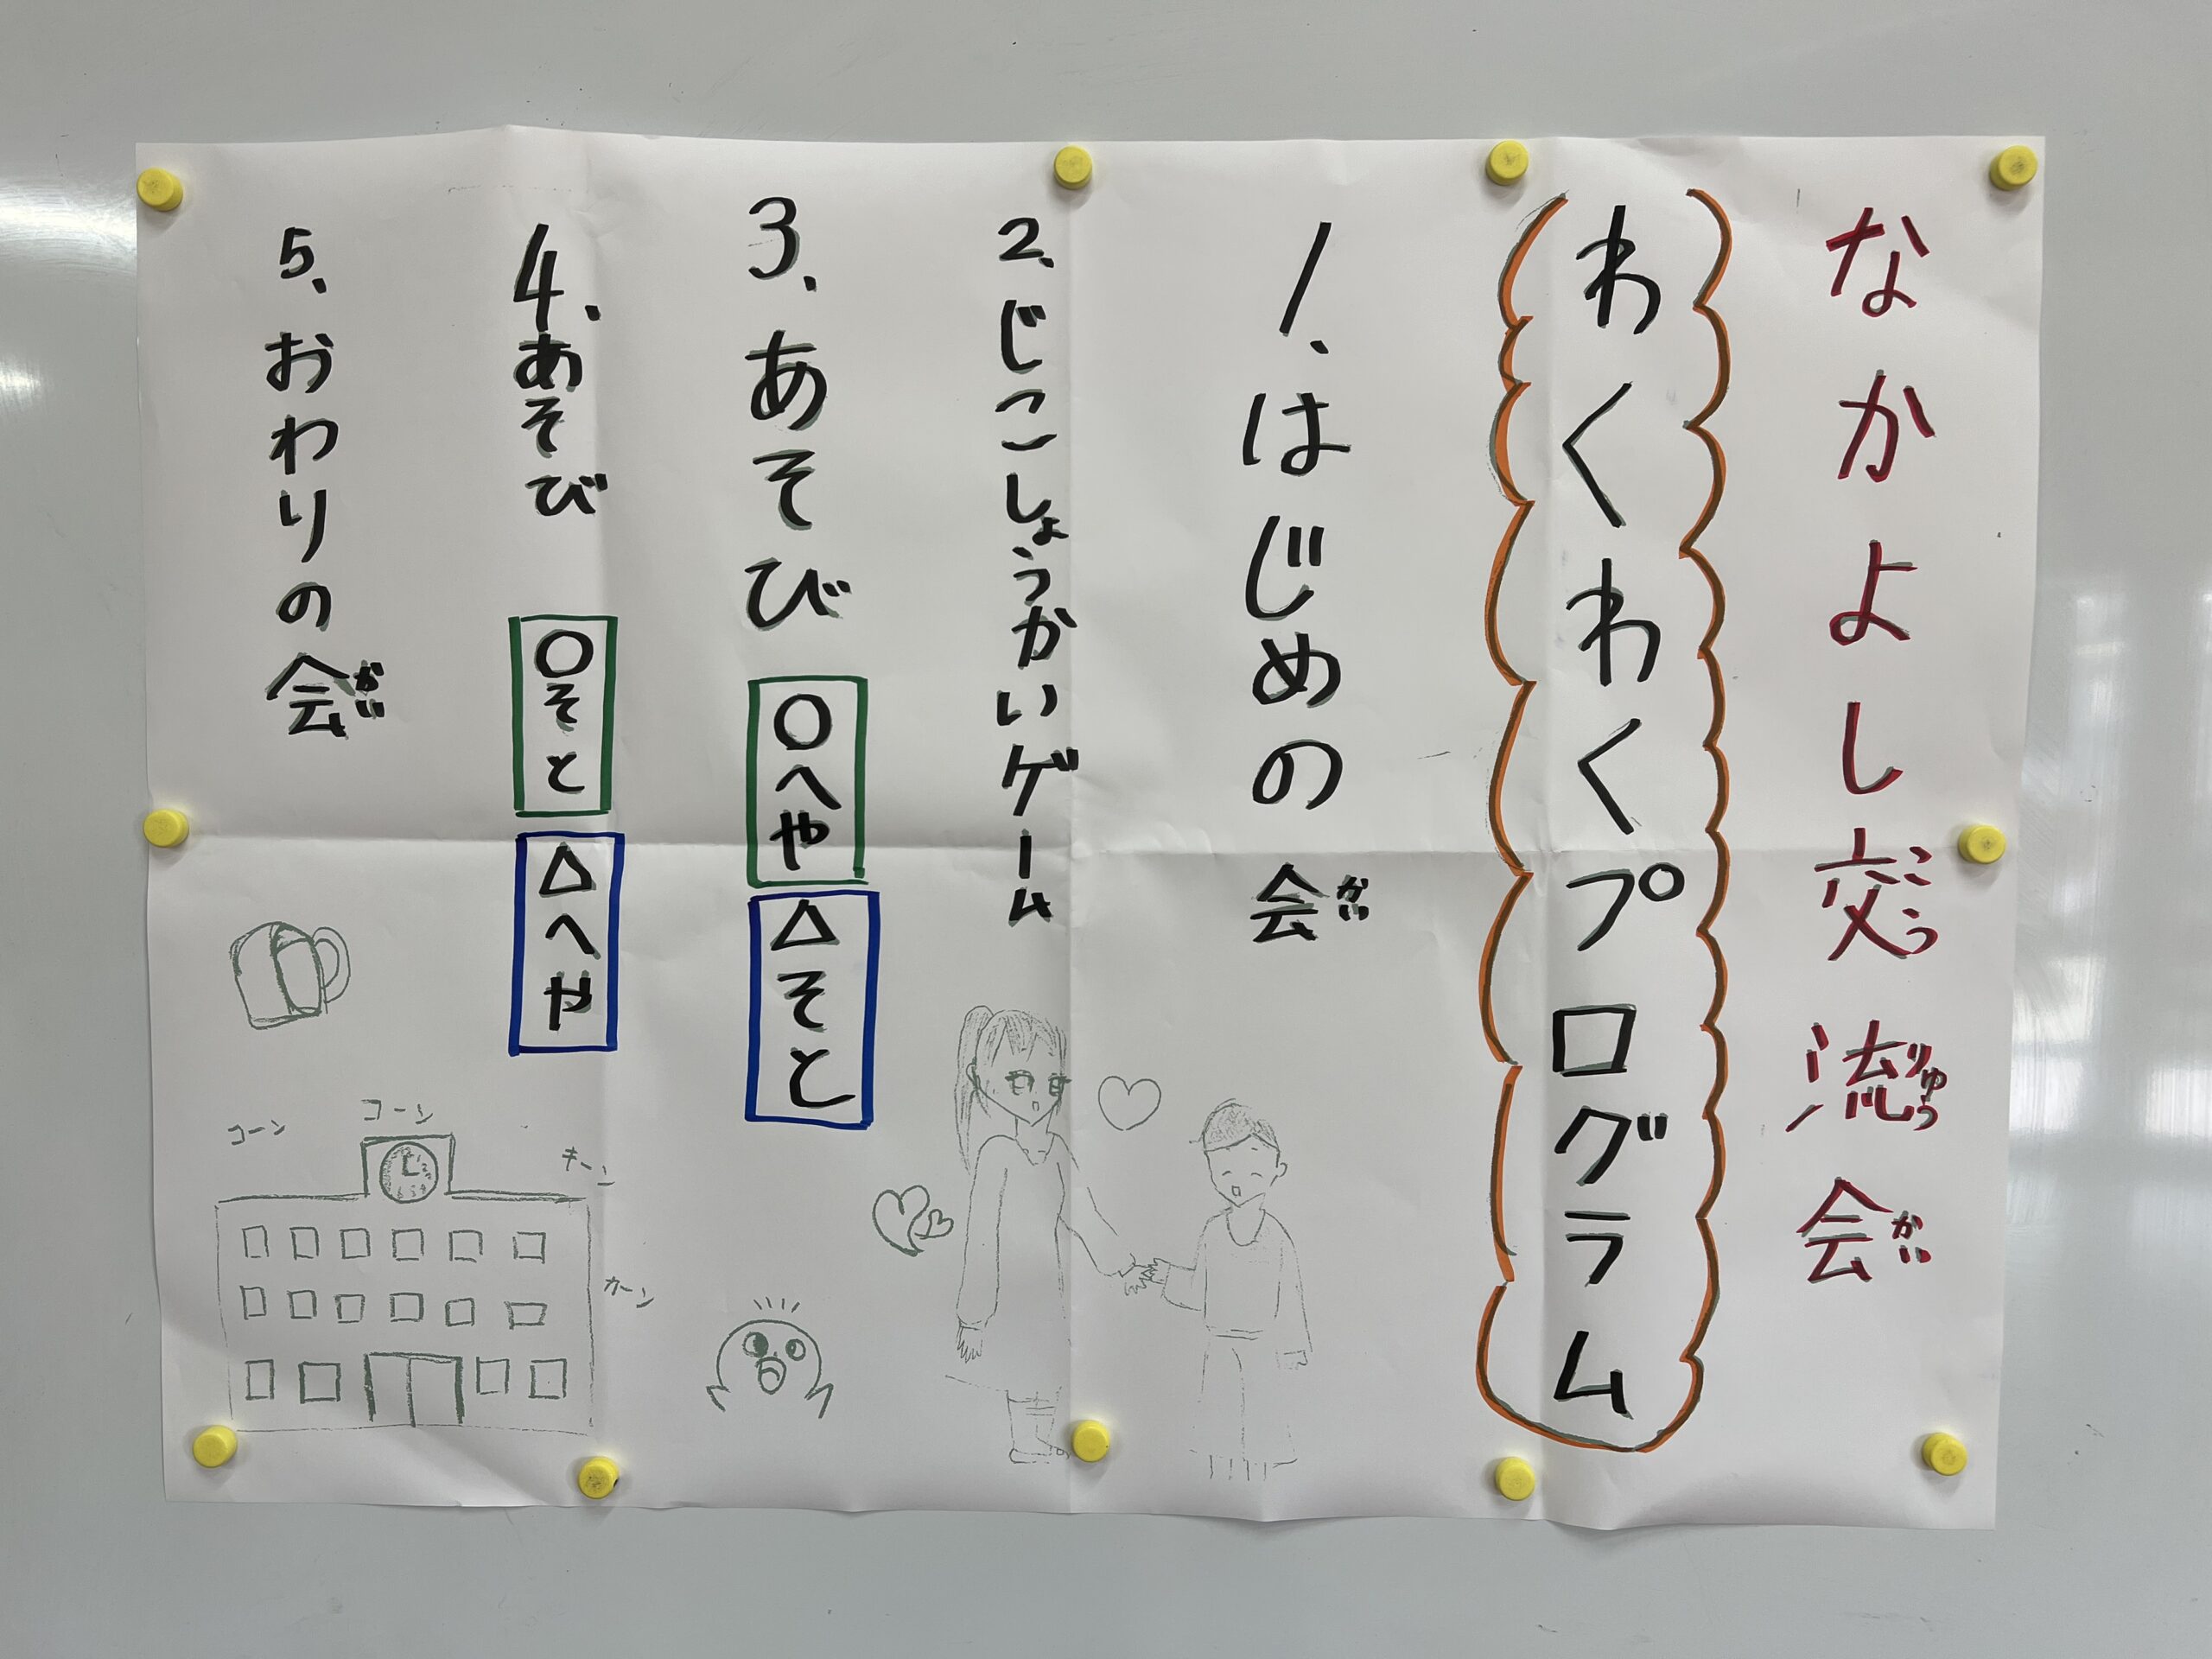 なかよし交流会
こうりゅうかい
わくわくプログラム
1、はじめの会
かい
2、じこしょうかいゲーム
3、あそび ○へや △そと
4、あそび ○そと △へや
5、おわりの会
かい
キーン
コーン
カーン
コーン